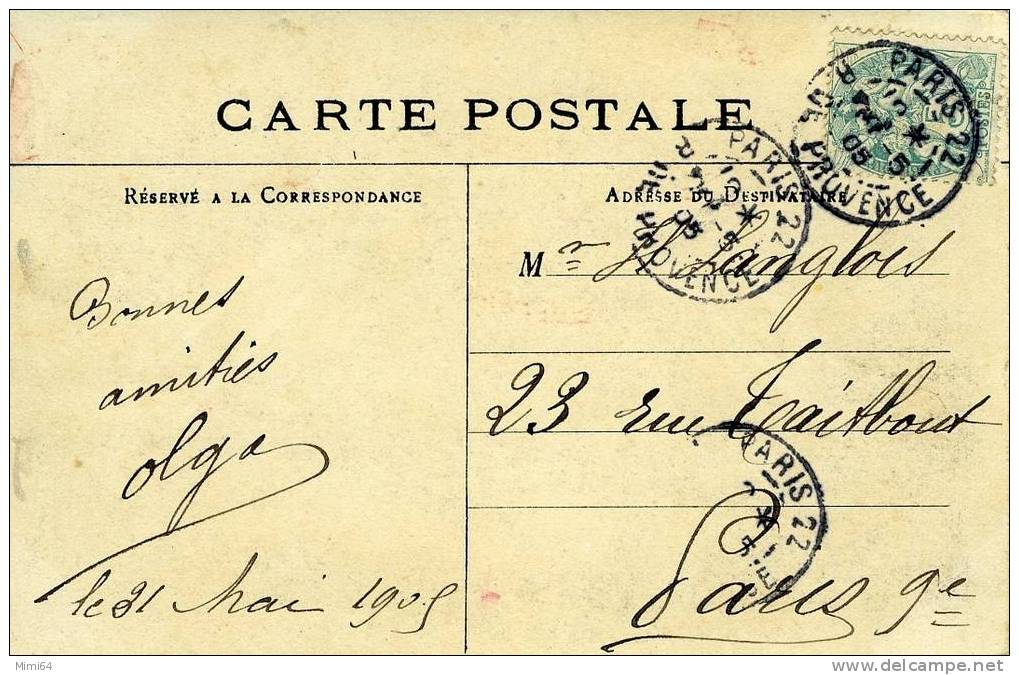 CARTE POSTALE
RÉSERVÉ A LA CORRESPONDANCE
Bonnes
amitiés
Olga
le 31 Mai 1905
ADRESSE DU DESTINATAIRE
Mr H Langlois
23 rue Taitbout
Paris 9e
POSTES
PARIS 22
R. DE PROVENCE
PARIS 22
R. DE PROVENCE
PARIS 22
Mimi64
delcampe.net